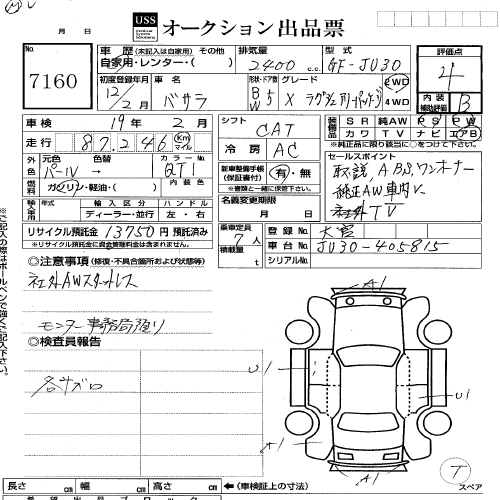 USS オークション出品票
月 日
No. 7160
車歴 (未記入は自家用) その他
自家用・レンター・( )
排気量 2400 c.c.
型式 GF-JU30
評価点 4
内装補助評価 B
初度登録年月 12年 2月
車名 バサラ
形状・ドア数 5
グレード X
2WD 4WD
車検 19年 2月
シフト CAT
装備 SR 純AW PS PW
カワ TV ナビ エアB
※純正品に限り該当に○をして下さい。
走行 87,246 Km マイル
冷房 AC
外色 元色 パール → 色替
カラーNo QT1
内装色
燃料 ガソリン・軽油・( )
新車整備手帳 (保証書付) 有・無
※書類と一緒に保管下さい。
セールスポイント
取説、ABS、ワンオーナー
純正AW車内
社外TV
輸入車用 年式 輸入区分 ハンドル
年 ディーラー・並行 左・右
名義変更期限 月 日
リサイクル預託金 13750円 預託済み
※リサイクル預託金に資金管理料金は含まれません。
乗車定員 7人
積載量 t
登録No. 大宮
車台No. JU30-405815
シリアルNo.
◎注意事項 (修復・不具合箇所および状態等)
社外AWスタットレス
モニター事務局預り
◎検査員報告
各キズ凹
A1
U1
U1
A1
A1
T スペア
長さ cm 幅 cm 高さ cm ←(車検証上の寸法)
※ご記入の際はボールペンで強くご記入下さい。